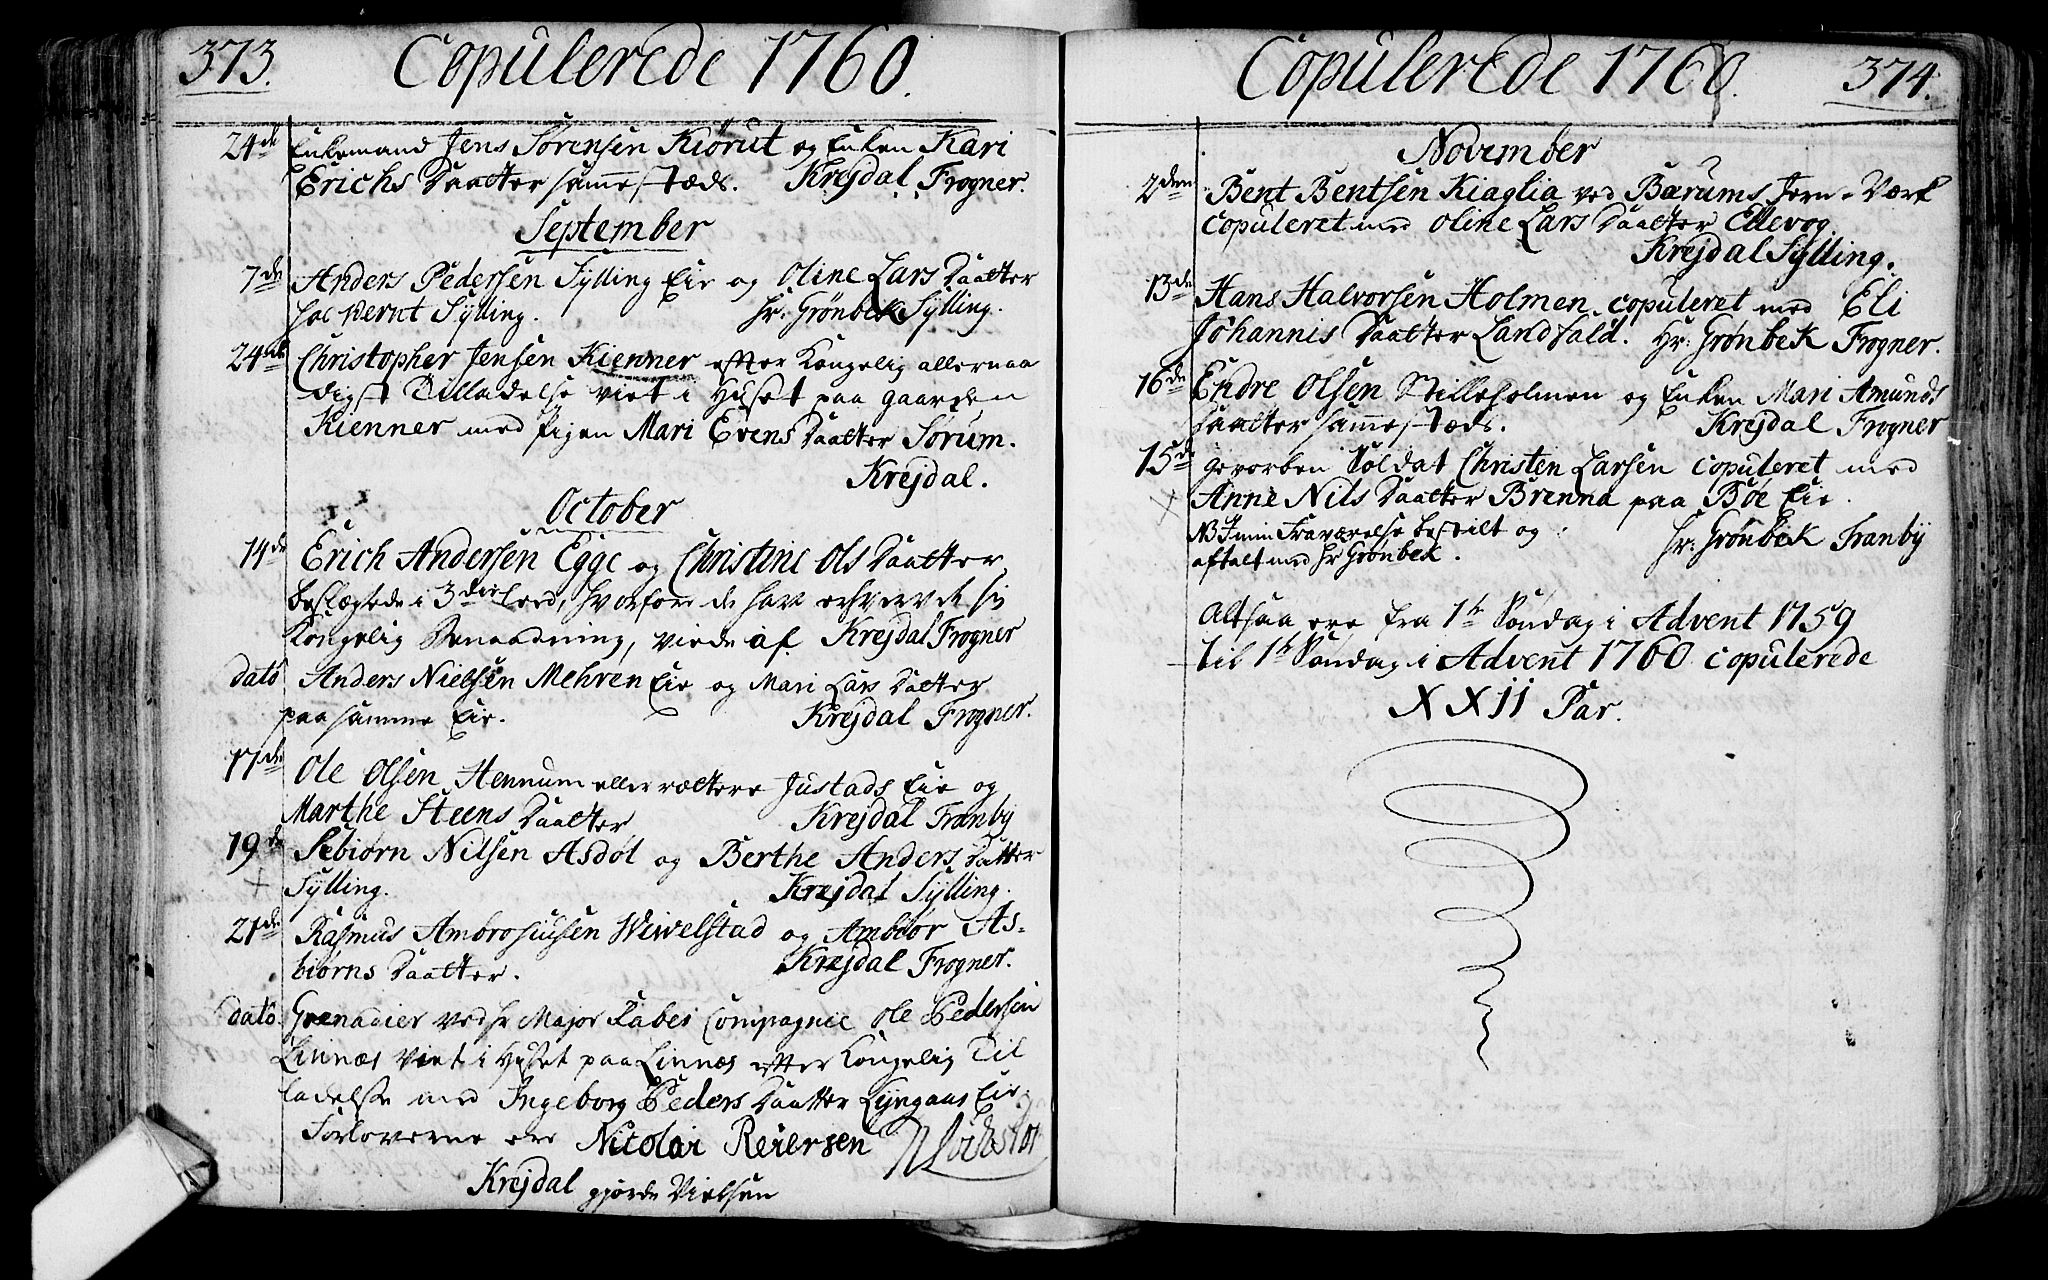 373.
Copulerede 1760.
24de Enkemand Jens Sørensen Kiørut og Enken Kari
Erichs Daatter sammestæds. Krejdal Frogner.
September
7de Anders Pedersen Sylling Eie og Oline Lars Daatter
Sylling. Hr. Grønbek Sylling.
24de Christopher Jensen Kienner efter Kongelig allernaa
digst Tilladelse viet i Huset paa gaarden
Kienner med Pigen Mari Evens Daatter Sørum.
Krejdal.
October
14de Erich Andersen Egge og Christine Ols Daatter
beslægtede i 3die Leed, hvorfore de har erhvervet sig
Kongelig Benaadning, viede af Krejdal Frogner
dato Anders Nielsen Mehren Eie og Mari Lars Datter
paa samme Eie. Krejdal Frogner.
17de Ole Olsen Hennum eller rættere Justads Eie og
Marthe Steens Daatter Krejdal Tranby
19de Sebiørn Nilsen Asdøl og Berthe Anders Datter
Sylling. Krejdal Sylling.
21de Rasmus Ambrosiussen Wiwelstad og Ambiør As-
biørns Daatter. Krejdal Frogner.
dato Grenadier ved Hr Major Rabes Compagnie Ole Pedersen
Linnæs viet i Huset paa Linnæs efter Kongelig Til
ladelse med Ingeborg Peders Daatter Lyngaas Eie
Forloverne ere Nicolai Reiersen
Krejdal gjorde Vielsen
Copulerede 1760.
374.
November
2den Bent Bentsen Kiaglia ved Bærums Jern-Værk
copuleret med Oline Lars Daatter Ellevog.
Krejdal Sylling.
13de Hans Halvorsen Holmen copuleret med Eli
Johannis Daatter Landfald. Hr: Grønbek Frogner.
16de Endre Olsen Stilleholmen og Enken Mari Amunds
Daatter sammestæds. Krejdal Frogner
15de gevorben Soldat Christen Larsen copuleret med
Anne Nils Daatter Brenna paa Bøe Eie.
NB I min Fraværelse bestilt og
aftalt med Hr Grønbek. Hr: Grønbek Tranby
Altsaa ere fra 1ste Søndag i Advent 1759
til 1ste Søndag i Advent 1760 copulerede
XXII Par.